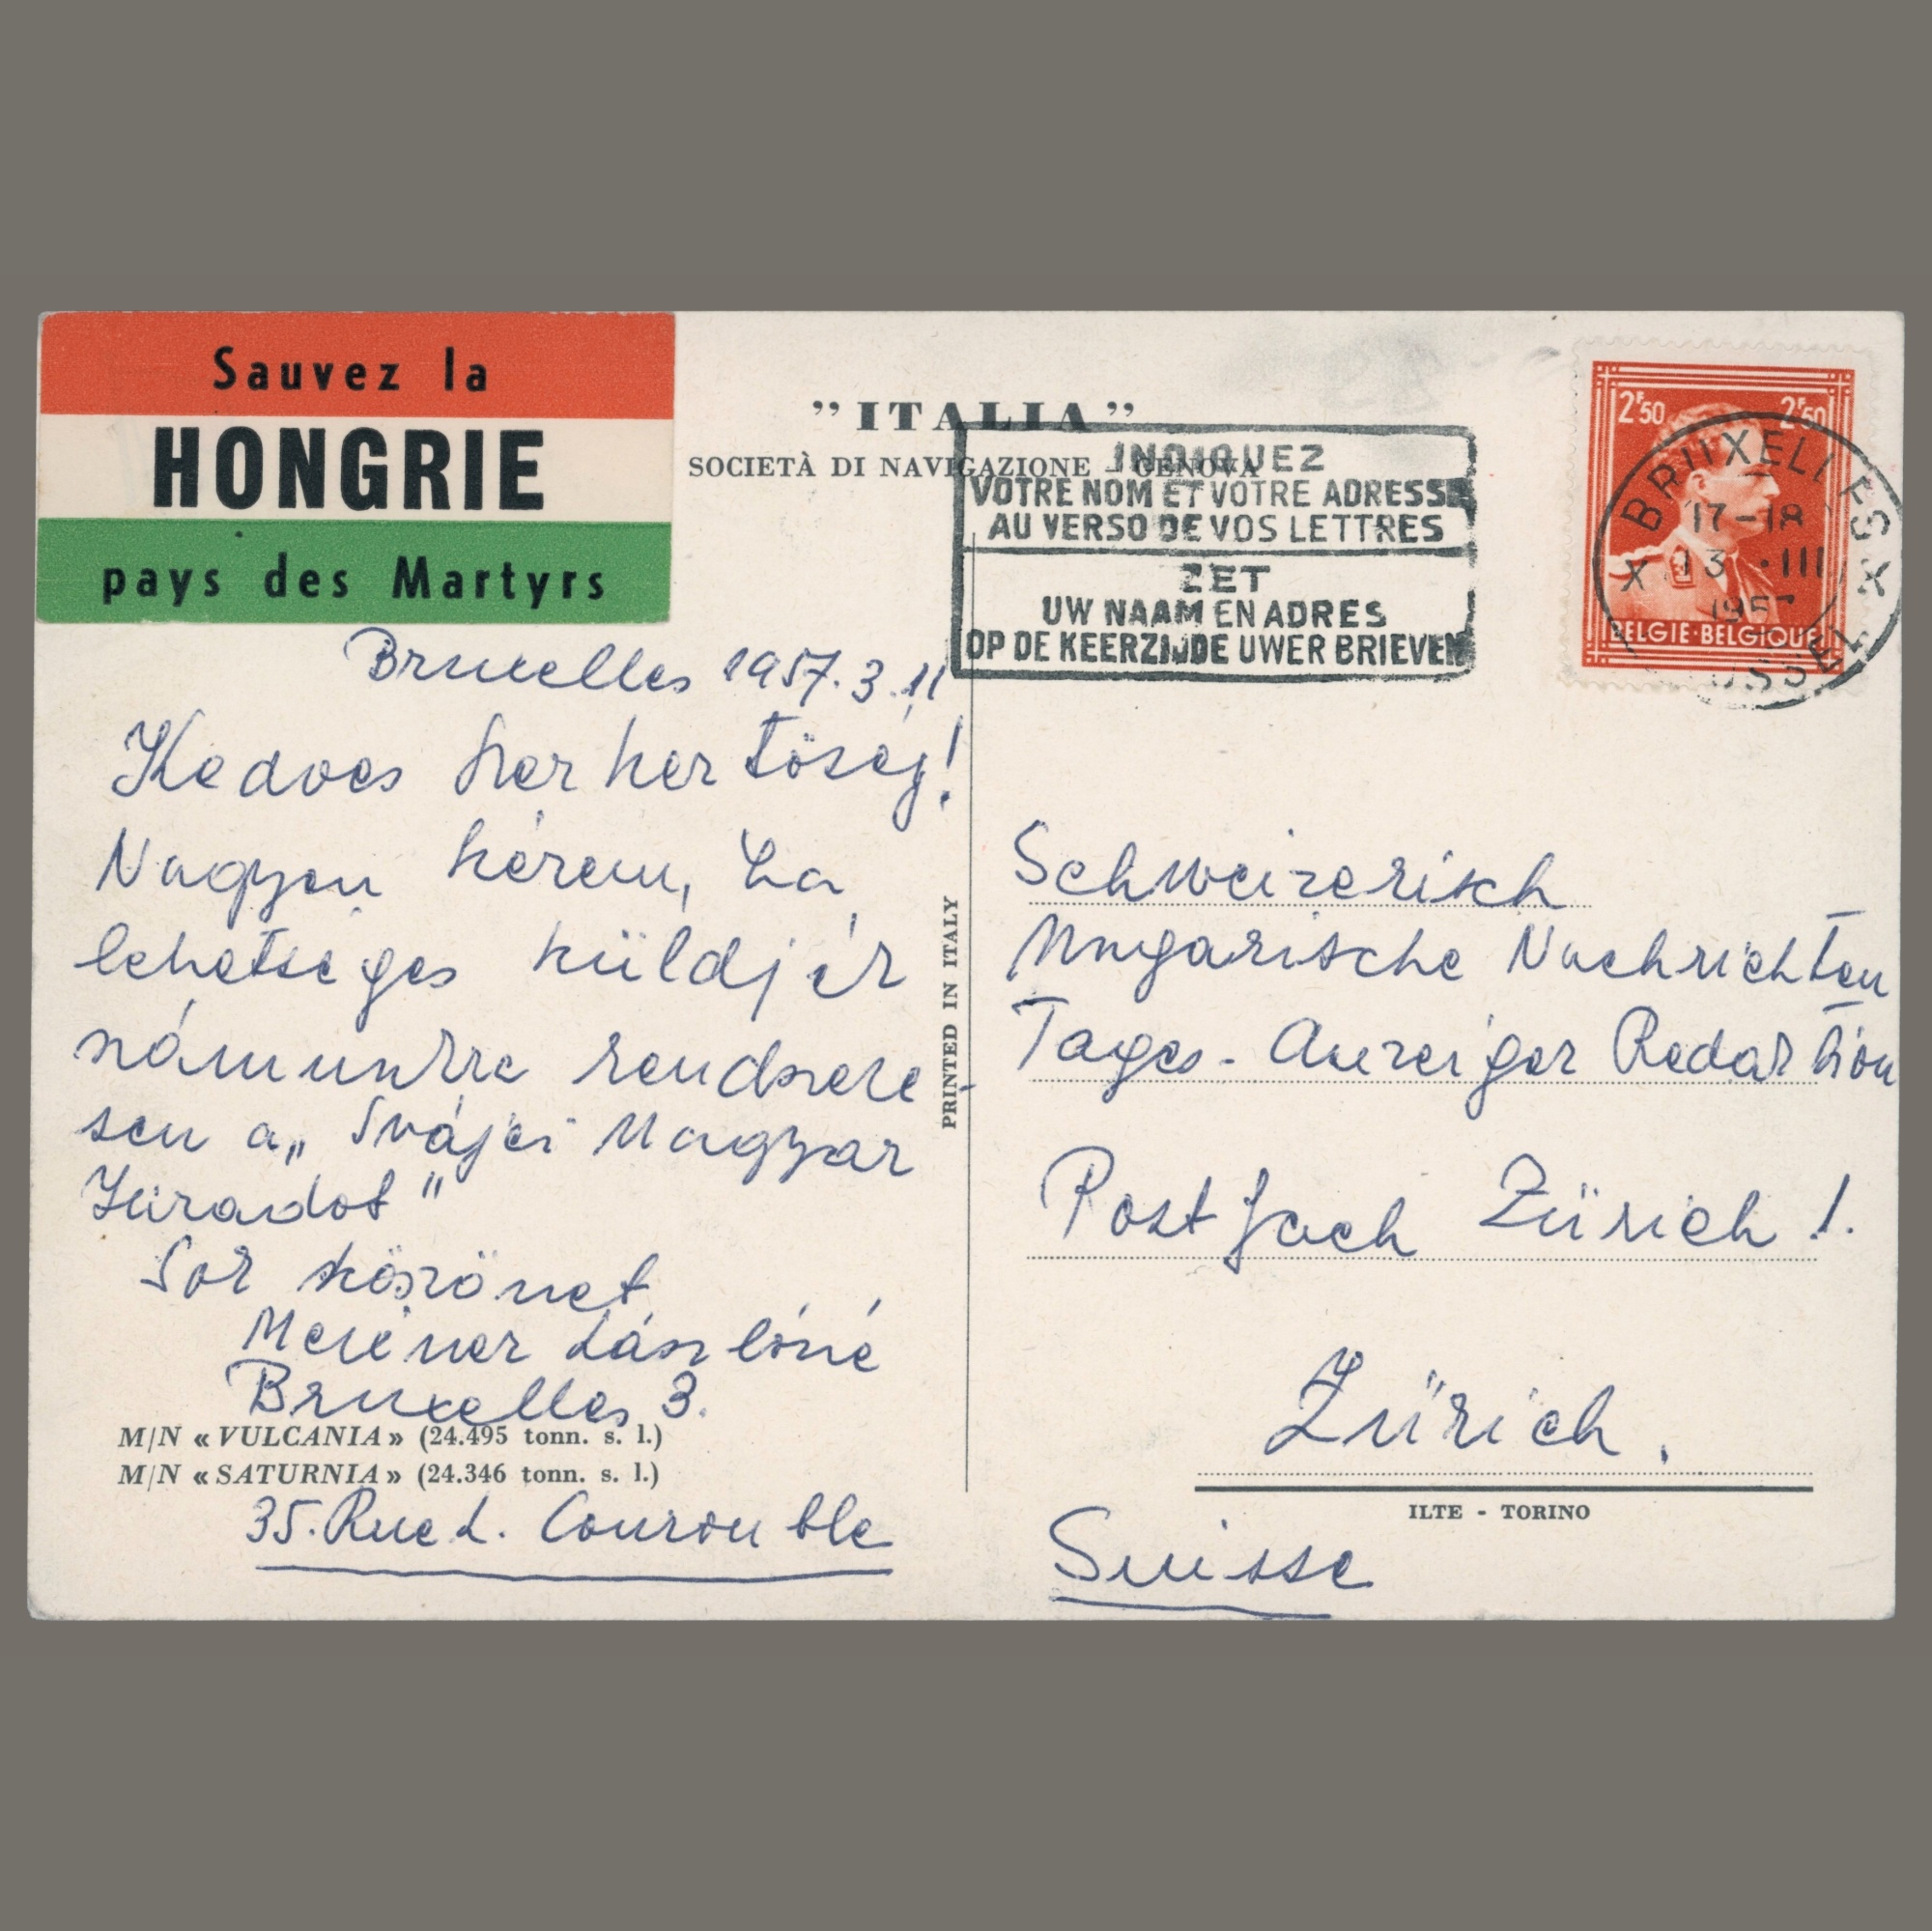 Sauvez la
HONGRIE
pays des Martyrs
"ITALIA"
SOCIETÀ DI NAVIGAZIONE - GENOVA
INDIQUEZ
VOTRE NOM ET VOTRE ADRESSE
AU VERSO DE VOS LETTRES
ZET
UW NAAM EN ADRES
OP DE KEERZIJDE UWER BRIEVEN
2F50 2F50
BELGIE·BELGIQUE
BRUXELLES X
17-18
13·III
1957
X
Bruxelles 1957.3.11
Kedves Szerkesztőség!
Nagyon kérem, ha
lehetséges küldjék
számunkra rendszere-
sen a „Svájci Magyar
Híradot"
Sok köszönet
László​né
Bruxelles 3.
M/N « VULCANIA » (24.495 tonn. s. l.)
M/N « SATURNIA » (24.346 tonn. s. l.)
35. Rue L. Courouble
PRINTED IN ITALY
Schweizerisch
Ungarische Nachrichten
Tages-Anzeiger Redaktion
Postfach Zürich 1.
Zürich.
ILTE - TORINO
Suisse